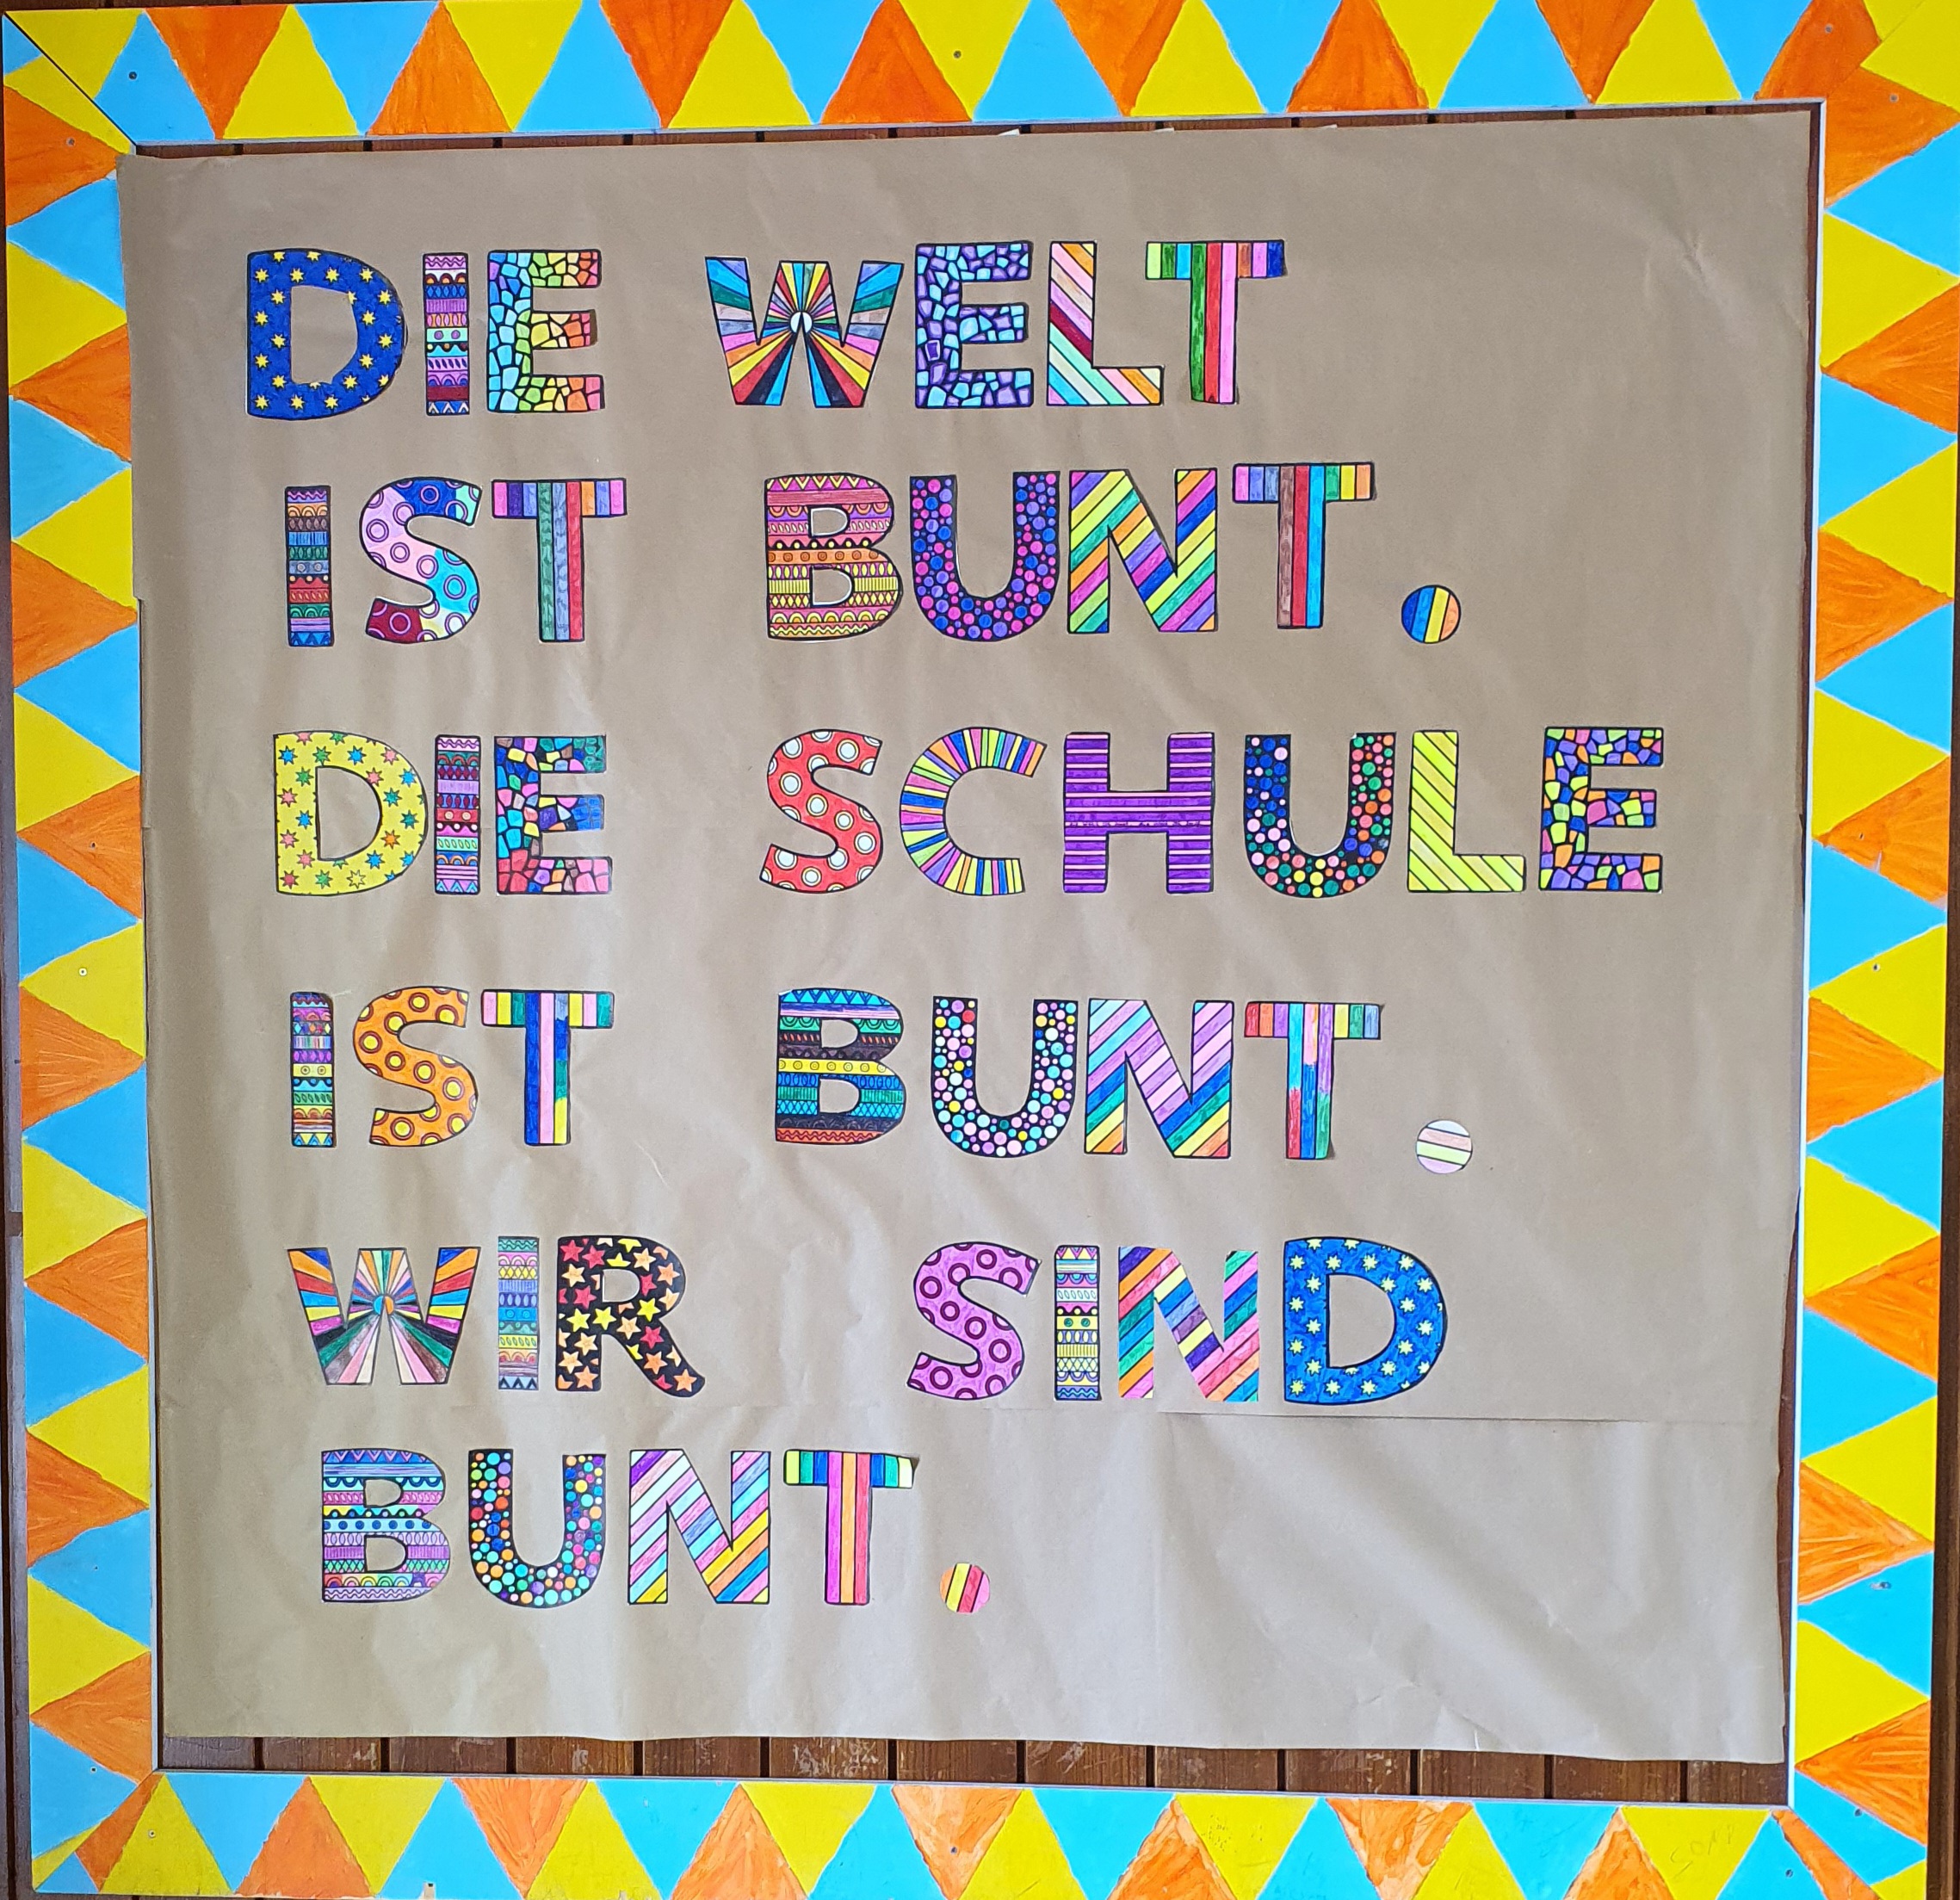 DIE WELT
IST BUNT.
DIE SCHULE
IST BUNT.
WIR SIND
BUNT.